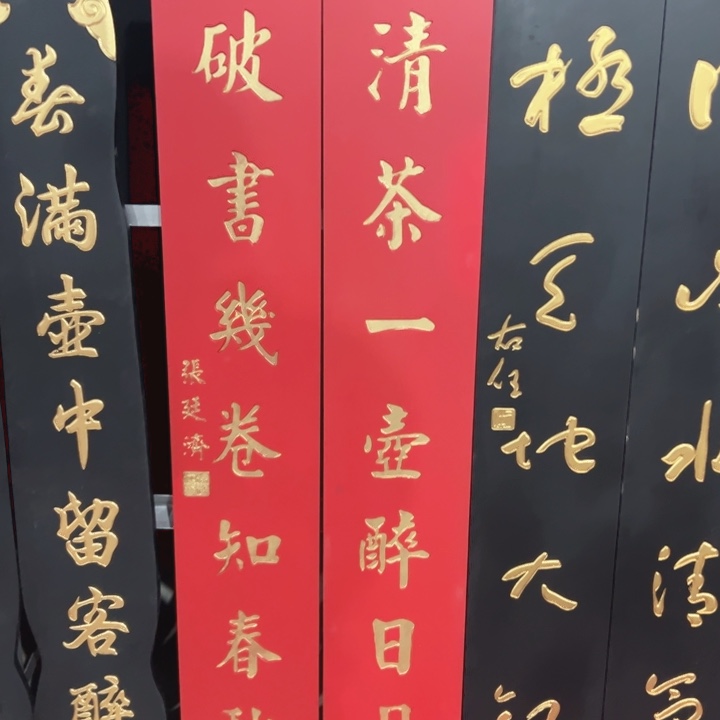 水清
極天地大
右任
清茶一壺醉日月
破書幾卷知春秋
張廷濟
春滿壺中留客醉